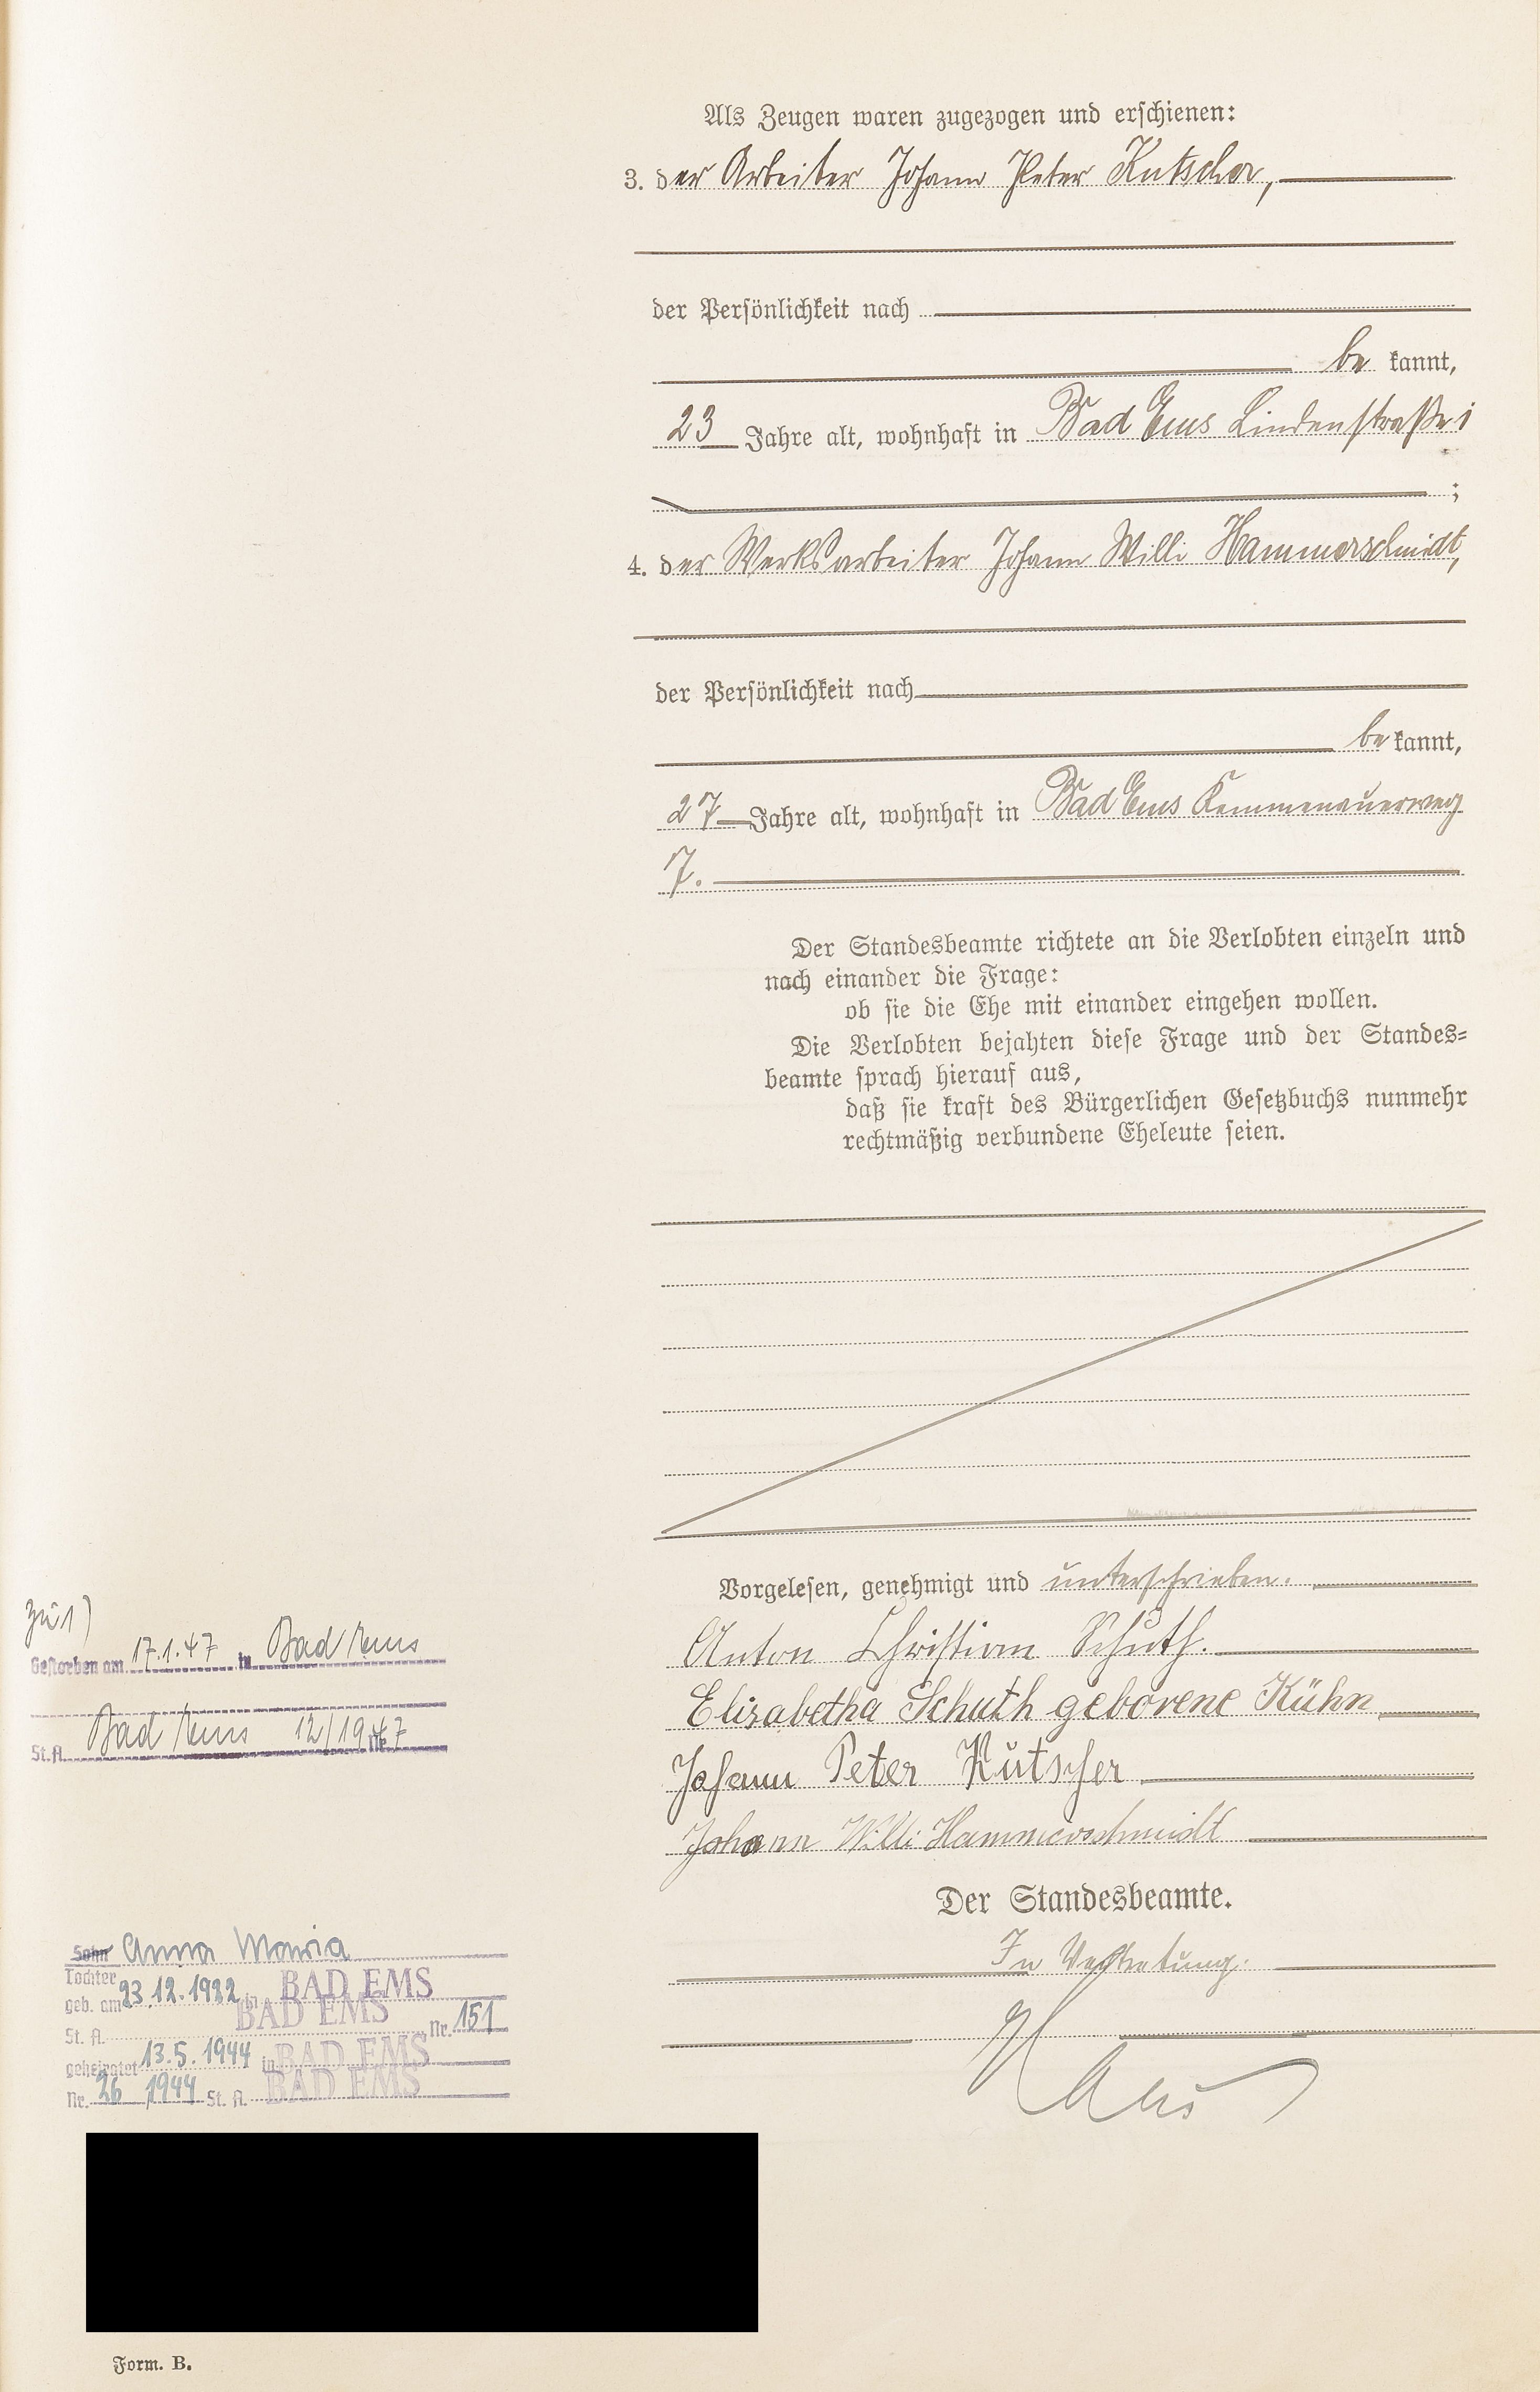 Als Zeugen waren zugezogen und erschienen:
3. der Arbeiter Johann Peter Kutscher,
der Persönlichkeit nach
be kannt,
23 Jahre alt, wohnhaft in Bad Ems Lindenstraße 1
;
4. der Werksarbeiter Johann Willi Hammerschmidt,
der Persönlichkeit nach
be kannt,
27 Jahre alt, wohnhaft in Bad Ems Kemmenauerweg
7.
Der Standesbeamte richtete an die Verlobten einzeln und
nach einander die Frage:
ob sie die Ehe mit einander eingehen wollen.
Die Verlobten bejahten diese Frage und der Standes-
beamte sprach hierauf aus,
daß sie kraft des Bürgerlichen Gesetzbuchs nunmehr
rechtmäßig verbundene Eheleute seien.
Vorgelesen, genehmigt und unterschrieben.
Anton Christian Schuth.
Elisabetha Schuth geborene Kühn
Johann Peter Kutscher
Johann Willi Hammerschmidt
Der Standesbeamte.
In Vertretung.
zu 1)
Gestorben am 17.1.47 in Bad Ems
St.A. Bad Ems 12/1947 Nr.
Sohn Anna Maria
Tochter
geb. am 23.12.1922 in BAD EMS
St. A. BAD EMS Nr. 151
geheiratet 13.5.1944 in BAD EMS
Nr. 26 1944 St. A. BAD EMS
Form. B.